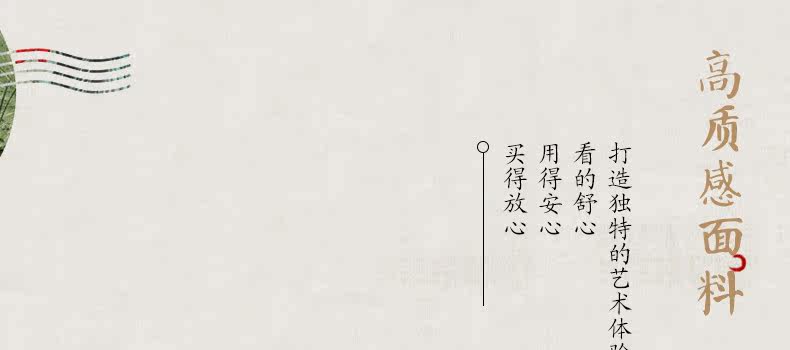 高质感面料
打造独特的艺术体验
看的舒心
用得安心
买得放心